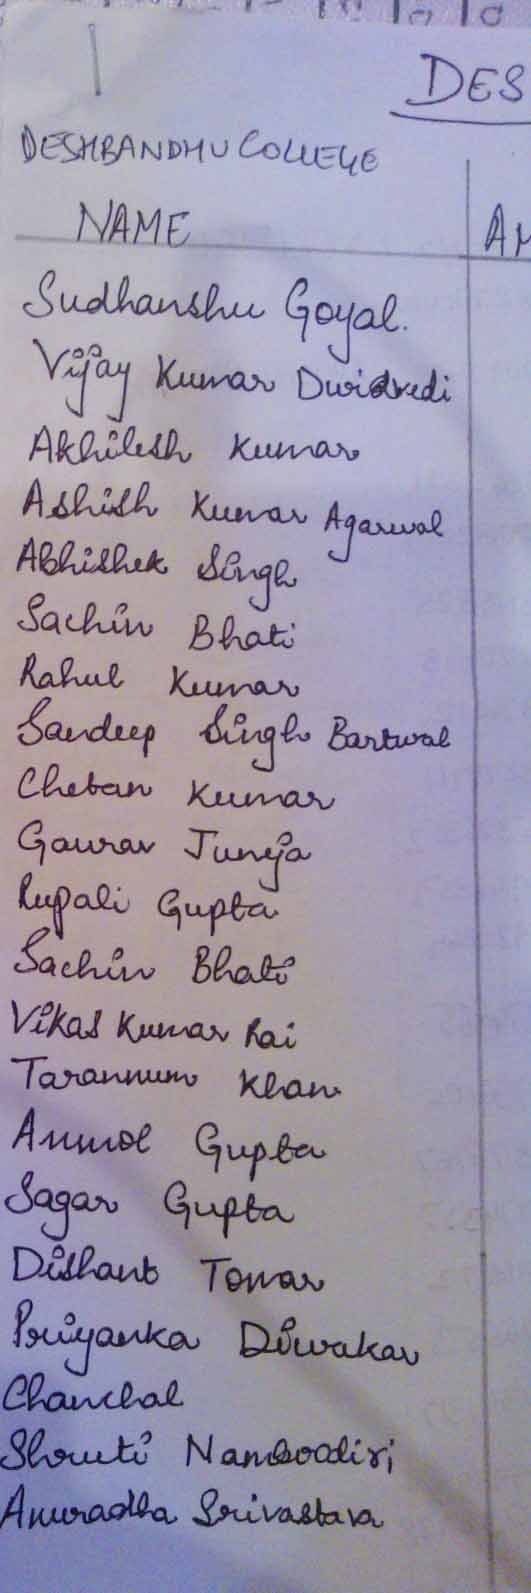 DES
DESHBANDHU COLLEGE
NAME
AM
Sudhanshu Goyal.
Vijay Kumar Dwidvedi
Akhilesh Kumar
Ashish Kumar Agarwal
Abhishek Singh
Sachin Bhati
Rahul Kumar
Sandeep Singh Bartwal
Chetan Kumar
Gaurav Juneja
Rupali Gupta
Sachin Bhati
Vikas Kumar Rai
Tarannum Khan
Anmol Gupta
Sagar Gupta
Dishant Tomar
Priyanka Diwakar
Chanchal
Shruti Namboodiri
Anuradha Srivastava